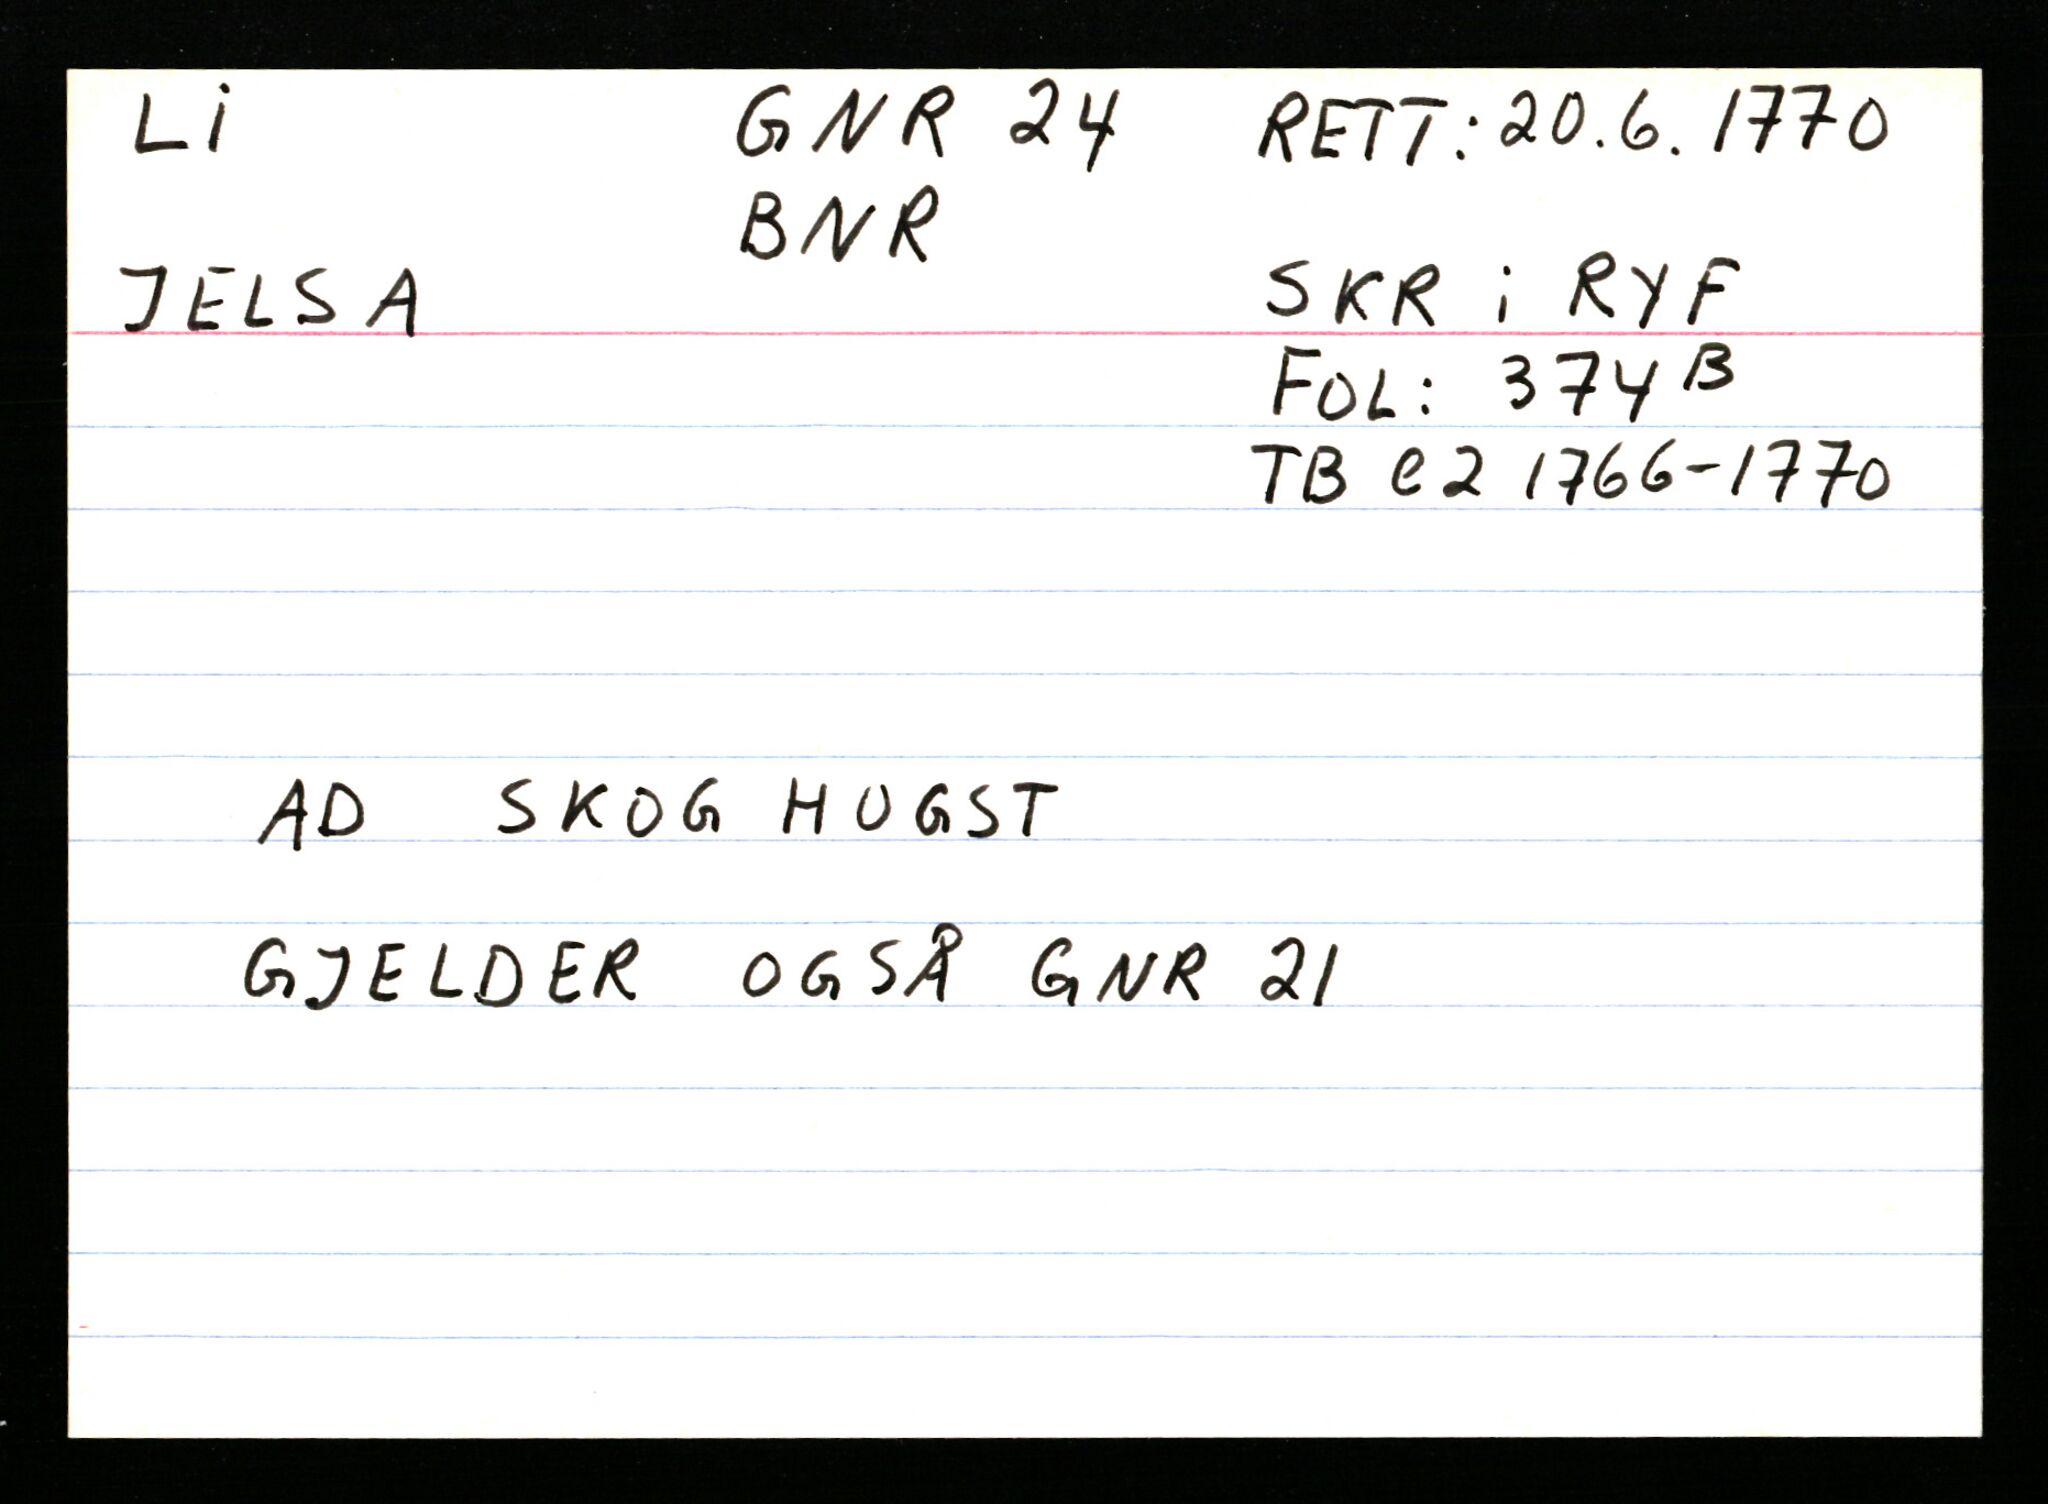 Li GNR 24 RETT: 20.6.1770
BNR
JELSA SKR i RYF
FOL: 374 B
TB C2 1766-1770
AD SKOG HUGST
GJELDER OGSÅ GNR 21